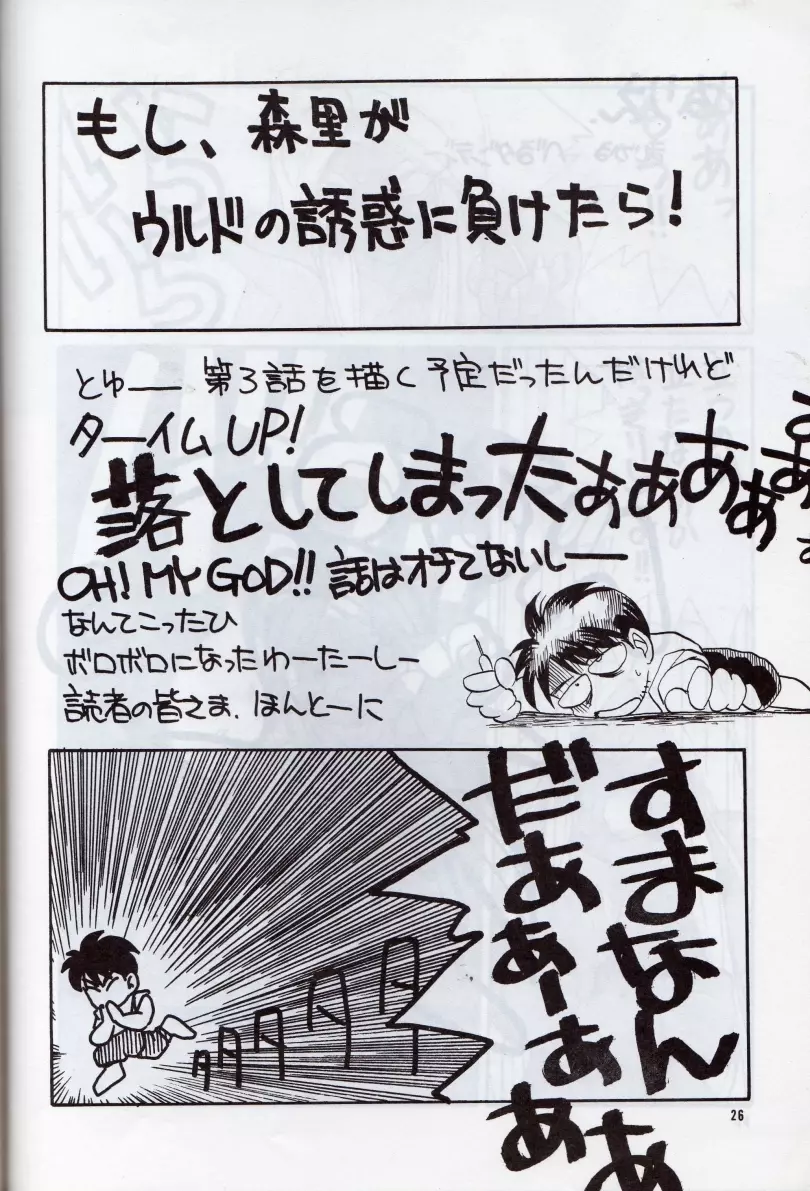 もし、森里が
ウルドの誘惑に負けたら!
とゆー 第3話を描く予定だったんだけれど
タームUP!
落としてしまったぁぁぁぁぁぁ
OH! MY GOD!! 話はオチてないしー
なんてこったひ
ボロボロになったわーたーしー
読者の皆さま、ほんとーに
すまなん
だぁぁーぁぁぁ
ダダダダダダ
26